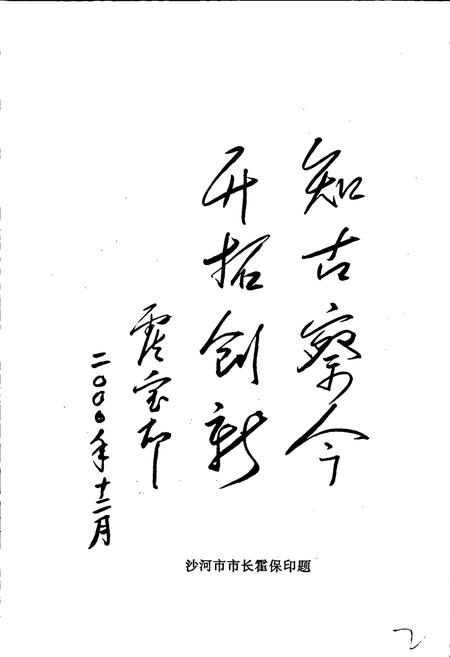 知古察今
开拓创新
霍宝印
二〇〇〇年十二月
沙河市市长霍保印题